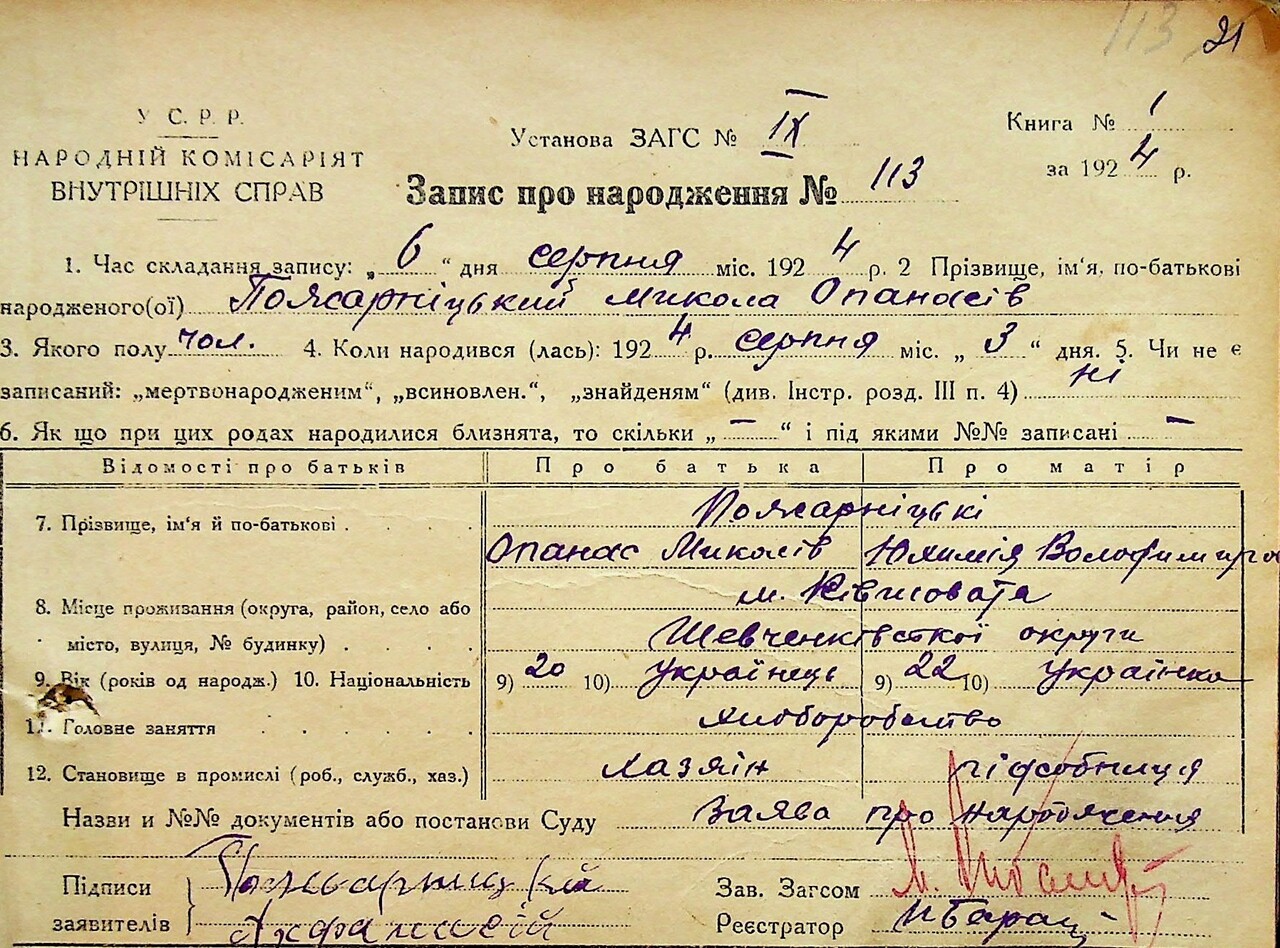 113 21
У. С. Р. Р.
НАРОДНІЙ КОМІСАРІЯТ
ВНУТРІШНІХ СПРАВ
Установа ЗАГС № IX
Книга № 1
за 1924 р.
Запис про народження № 113
1. Час складання запису: „6“ дня серпня міс. 1924 р. 2 Прізвище, ім'я, по-батькові
народженого(ої) Пожарніцький Микола Опанасів
3. Якого полу чол. 4. Коли народився (лась): 1924 р. серпня міс. „3“ дня. 5. Чи не є
записаний: „мертвонародженим“, „всиновлен.“, „знайденям“ (див. Інстр. розд. III п. 4) ні
6. Як що при цих родах народилися близнята, то скільки „—“ і під якими №№ записані —
Відомості про батьків Про батька Про матір
7. Прізвище, ім'я й по-батькові Пожарніцькі
Опанас Миколів Юхимія
8. Місце проживання (округа, район, село або м. Ківшовата
місто, вулиця, № будинку) Шевченківської округи
9. Вік (років од народж.) 10. Національність 9) 20 10) Українець 9) 22 10) Українка
11. Головне заняття хліборобство
12. Становище в промислі (роб., служб., хаз.) хазяїн підсобниця
Назви и №№ документів або постанови Суду Заява про народження
Підписи
заявителів
Зав. Загсом
Реєстратор